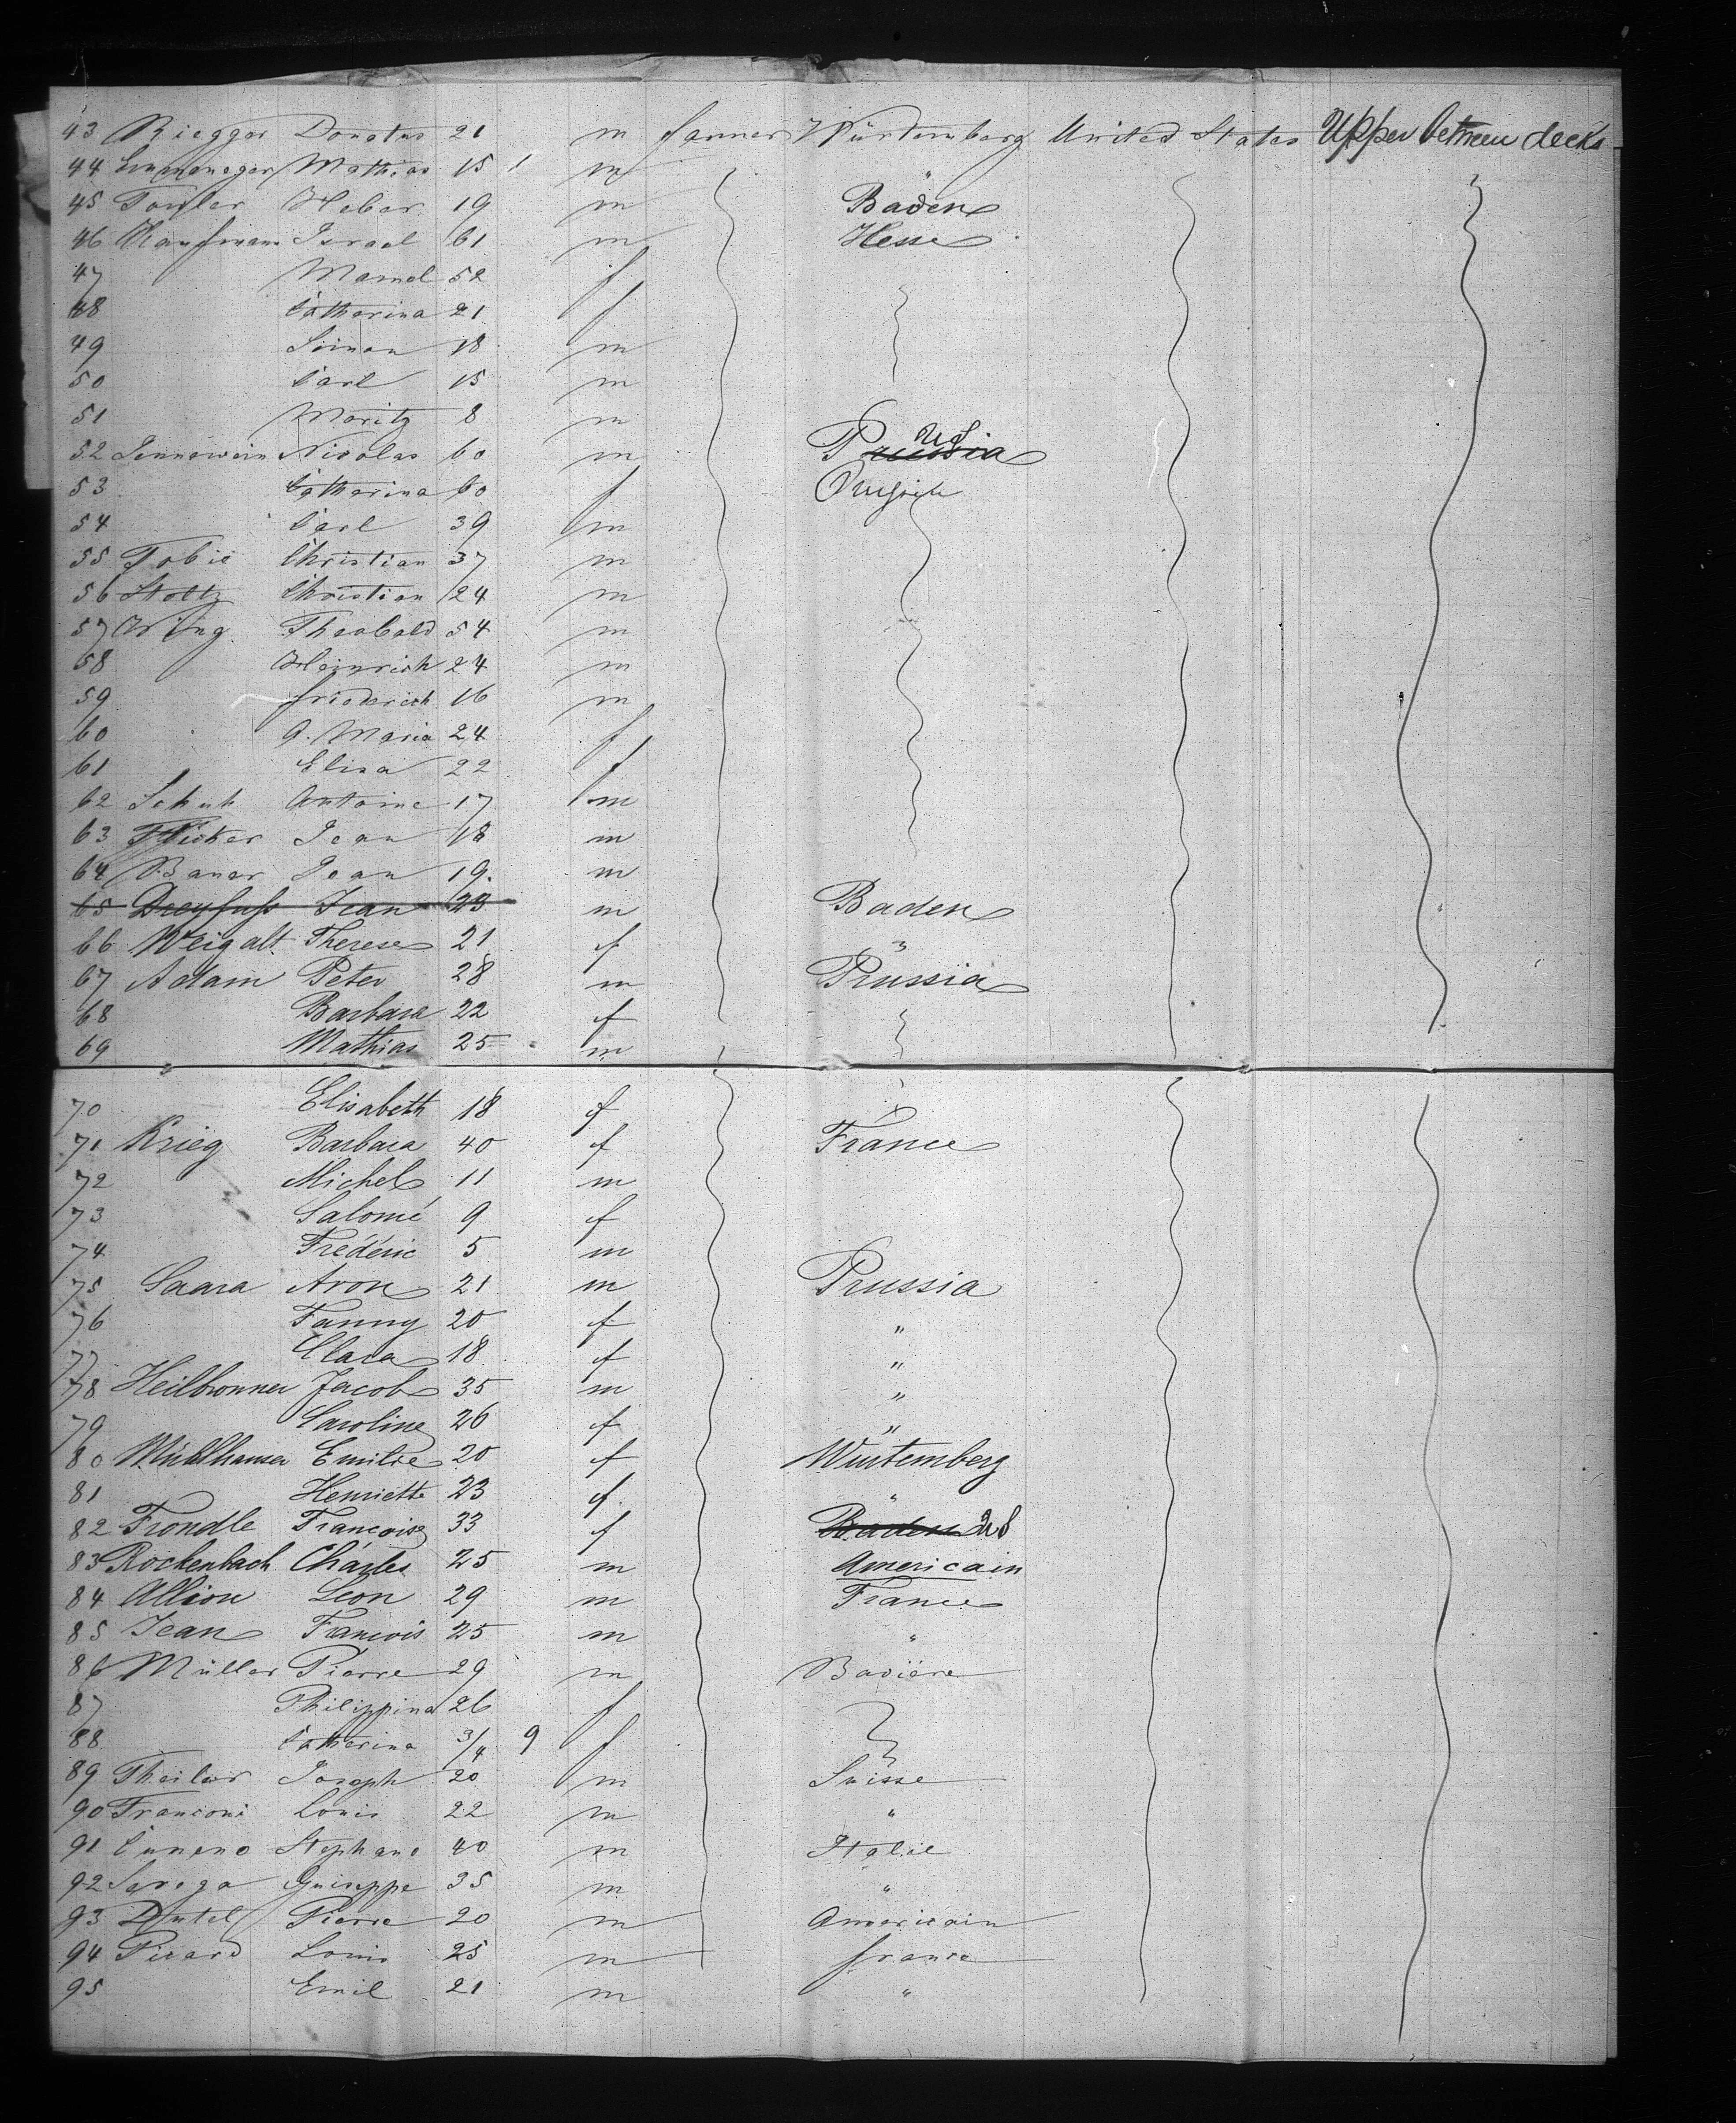 43 Riegger Donatus 21 m farmer Würtemberg United States Upper between decks
44 Mathias 15 1 m "
45 19 m Baden
46 Kaufmann Israel 61 m Hesse
47 Mamel 52 f
48 Catharina 21 f
49 Simon 18 m
50 Carl 15 m
51 Moritz 8 m
52 Sennewein Nicolas 60 m Prussia US
53 Catharina 60 f
54 Carl 39 m
55 Tobie Christian 37 m
56 Stoltz Christian 24 m
57 Theobald 54 m
58 Heinrich 24 m
59 Friederich 16 m
60 A. Maria 24 f
61 Elisa 22 f
62 Schuh Antoine 17 m
63 Flicker Jean 18 m
64 Bauer Jean 19. m
65 Dreyfuss Jean 23 m Baden
66 Weigalt Therese 21 f "
67 Adam Peter 28 m Prussia
68 Barbara 22 f
69 Mathias 25 m
70 Elisabeth 18 f
71 Krieg Barbara 40 f France
72 Michel 11 m
73 Salomé 9 f
74 Frédéric 5 m
75 Saara Aron 21 m Prussia
76 Fanny 20 f "
77 Clara 18 f "
78 Heilbronner Jacob 35 m "
79 Caroline 26 f "
80 Mühlhauser Emilie 20 f Würtemberg
81 Henriette 23 f "
82 Frondle Francoise 33 f Baden US
83 Rockenbach Charles 25 m Americain
84 Allion Leon 29 m France
85 Jean Francois 25 m "
86 Müller Pierre 29 m Bavière
87 Philippina 26 f
88 Catherina 3/4 9 f
89 Theiler Joseph 20 m Suisse
90 Franconi Louis 22 m "
91 Cuneno Stephano 40 m Italie
92 Guiseppe 35 m "
93 Dutel Pierre 20 m Americain
94 Picard Louis 25 m france
95 Emil 21 m "